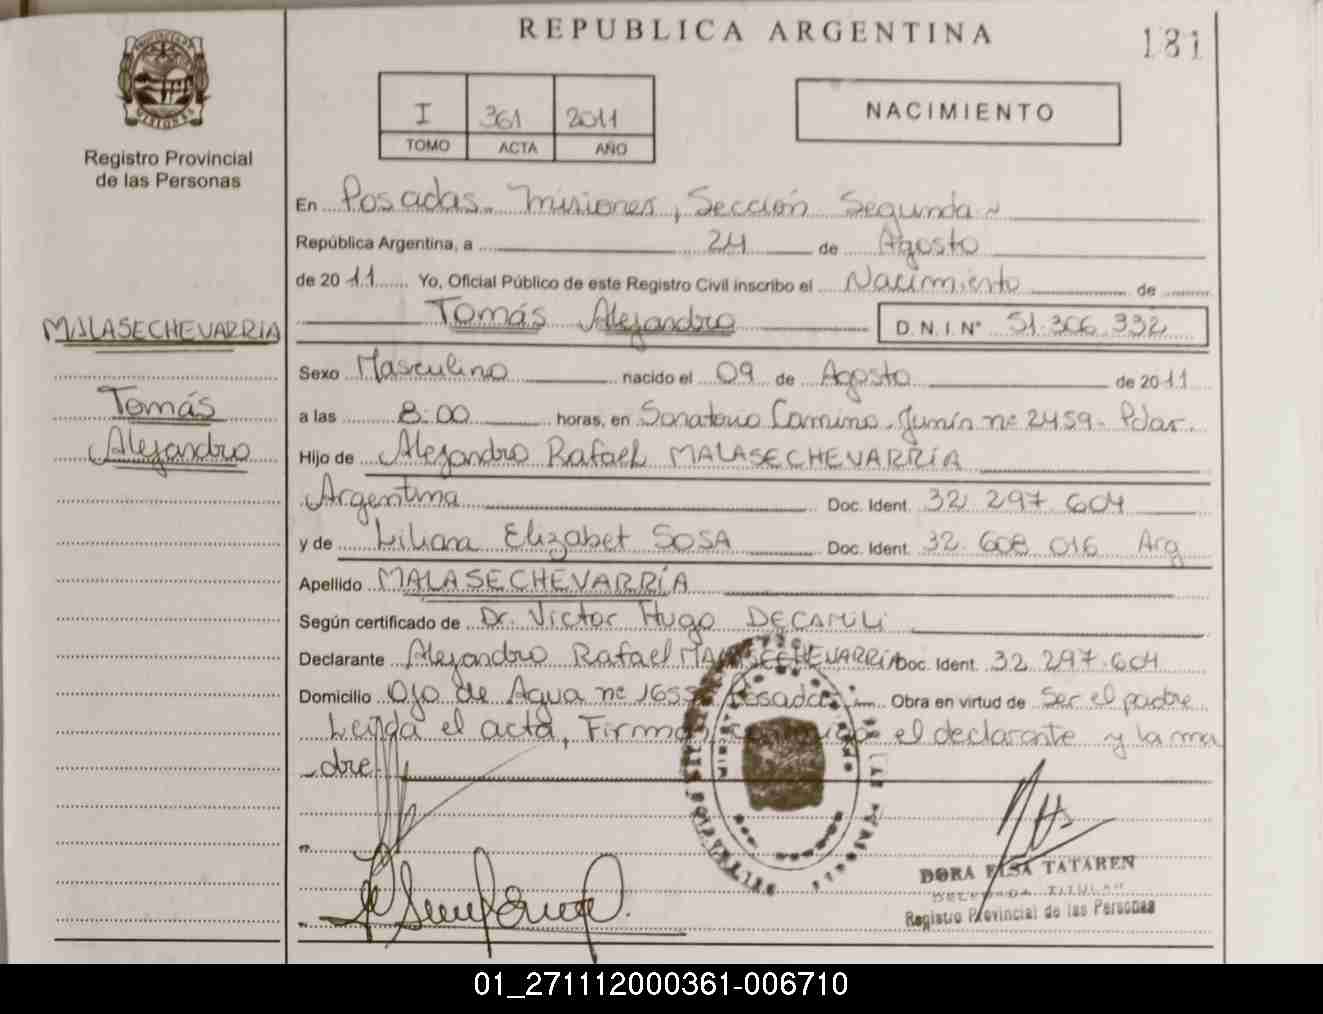 REPUBLICA ARGENTINA
181
PROVINCIA DE MISIONES
Registro Provincial
de las Personas
I 361 2011
TOMO ACTA AÑO
NACIMIENTO
En Posadas. Misiones, Sección Segunda
República Argentina, a 24 de Agosto
de 2011 Yo, Oficial Público de este Registro Civil inscribo el Nacimiento de
Tomás Alejandro D.N.I. N° 51.306.332
MALASECHEVARRIA
Tomás
Alejandro
Sexo Masculino nacido el 09 de Agosto de 2011
a las 8:00 horas, en Sanatorio Camino. Junín n° 2459- Pdas.
Hijo de Alejandro Rafael MALASECHEVARRÍA
Argentina Doc. Ident. 32.297.604
y de Liliana Elizabet SOSA Doc. Ident. 32.608.016 Arg
Apellido MALASECHEVARRÍA
Según certificado de Dr. Victor Hugo
Declarante Alejandro Rafael MALASECHEVARRÍA Doc. Ident. 32.297.604
Domicilio Ojo de Agua n° Posadas Obra en virtud de Ser el padre
Leída el acta, Firman conmigo el declarante y la ma
dre.
DORA ELSA TATAREN
DELEGADA TITULAR
Registro Provincial de las Personas
01_271112000361-006710